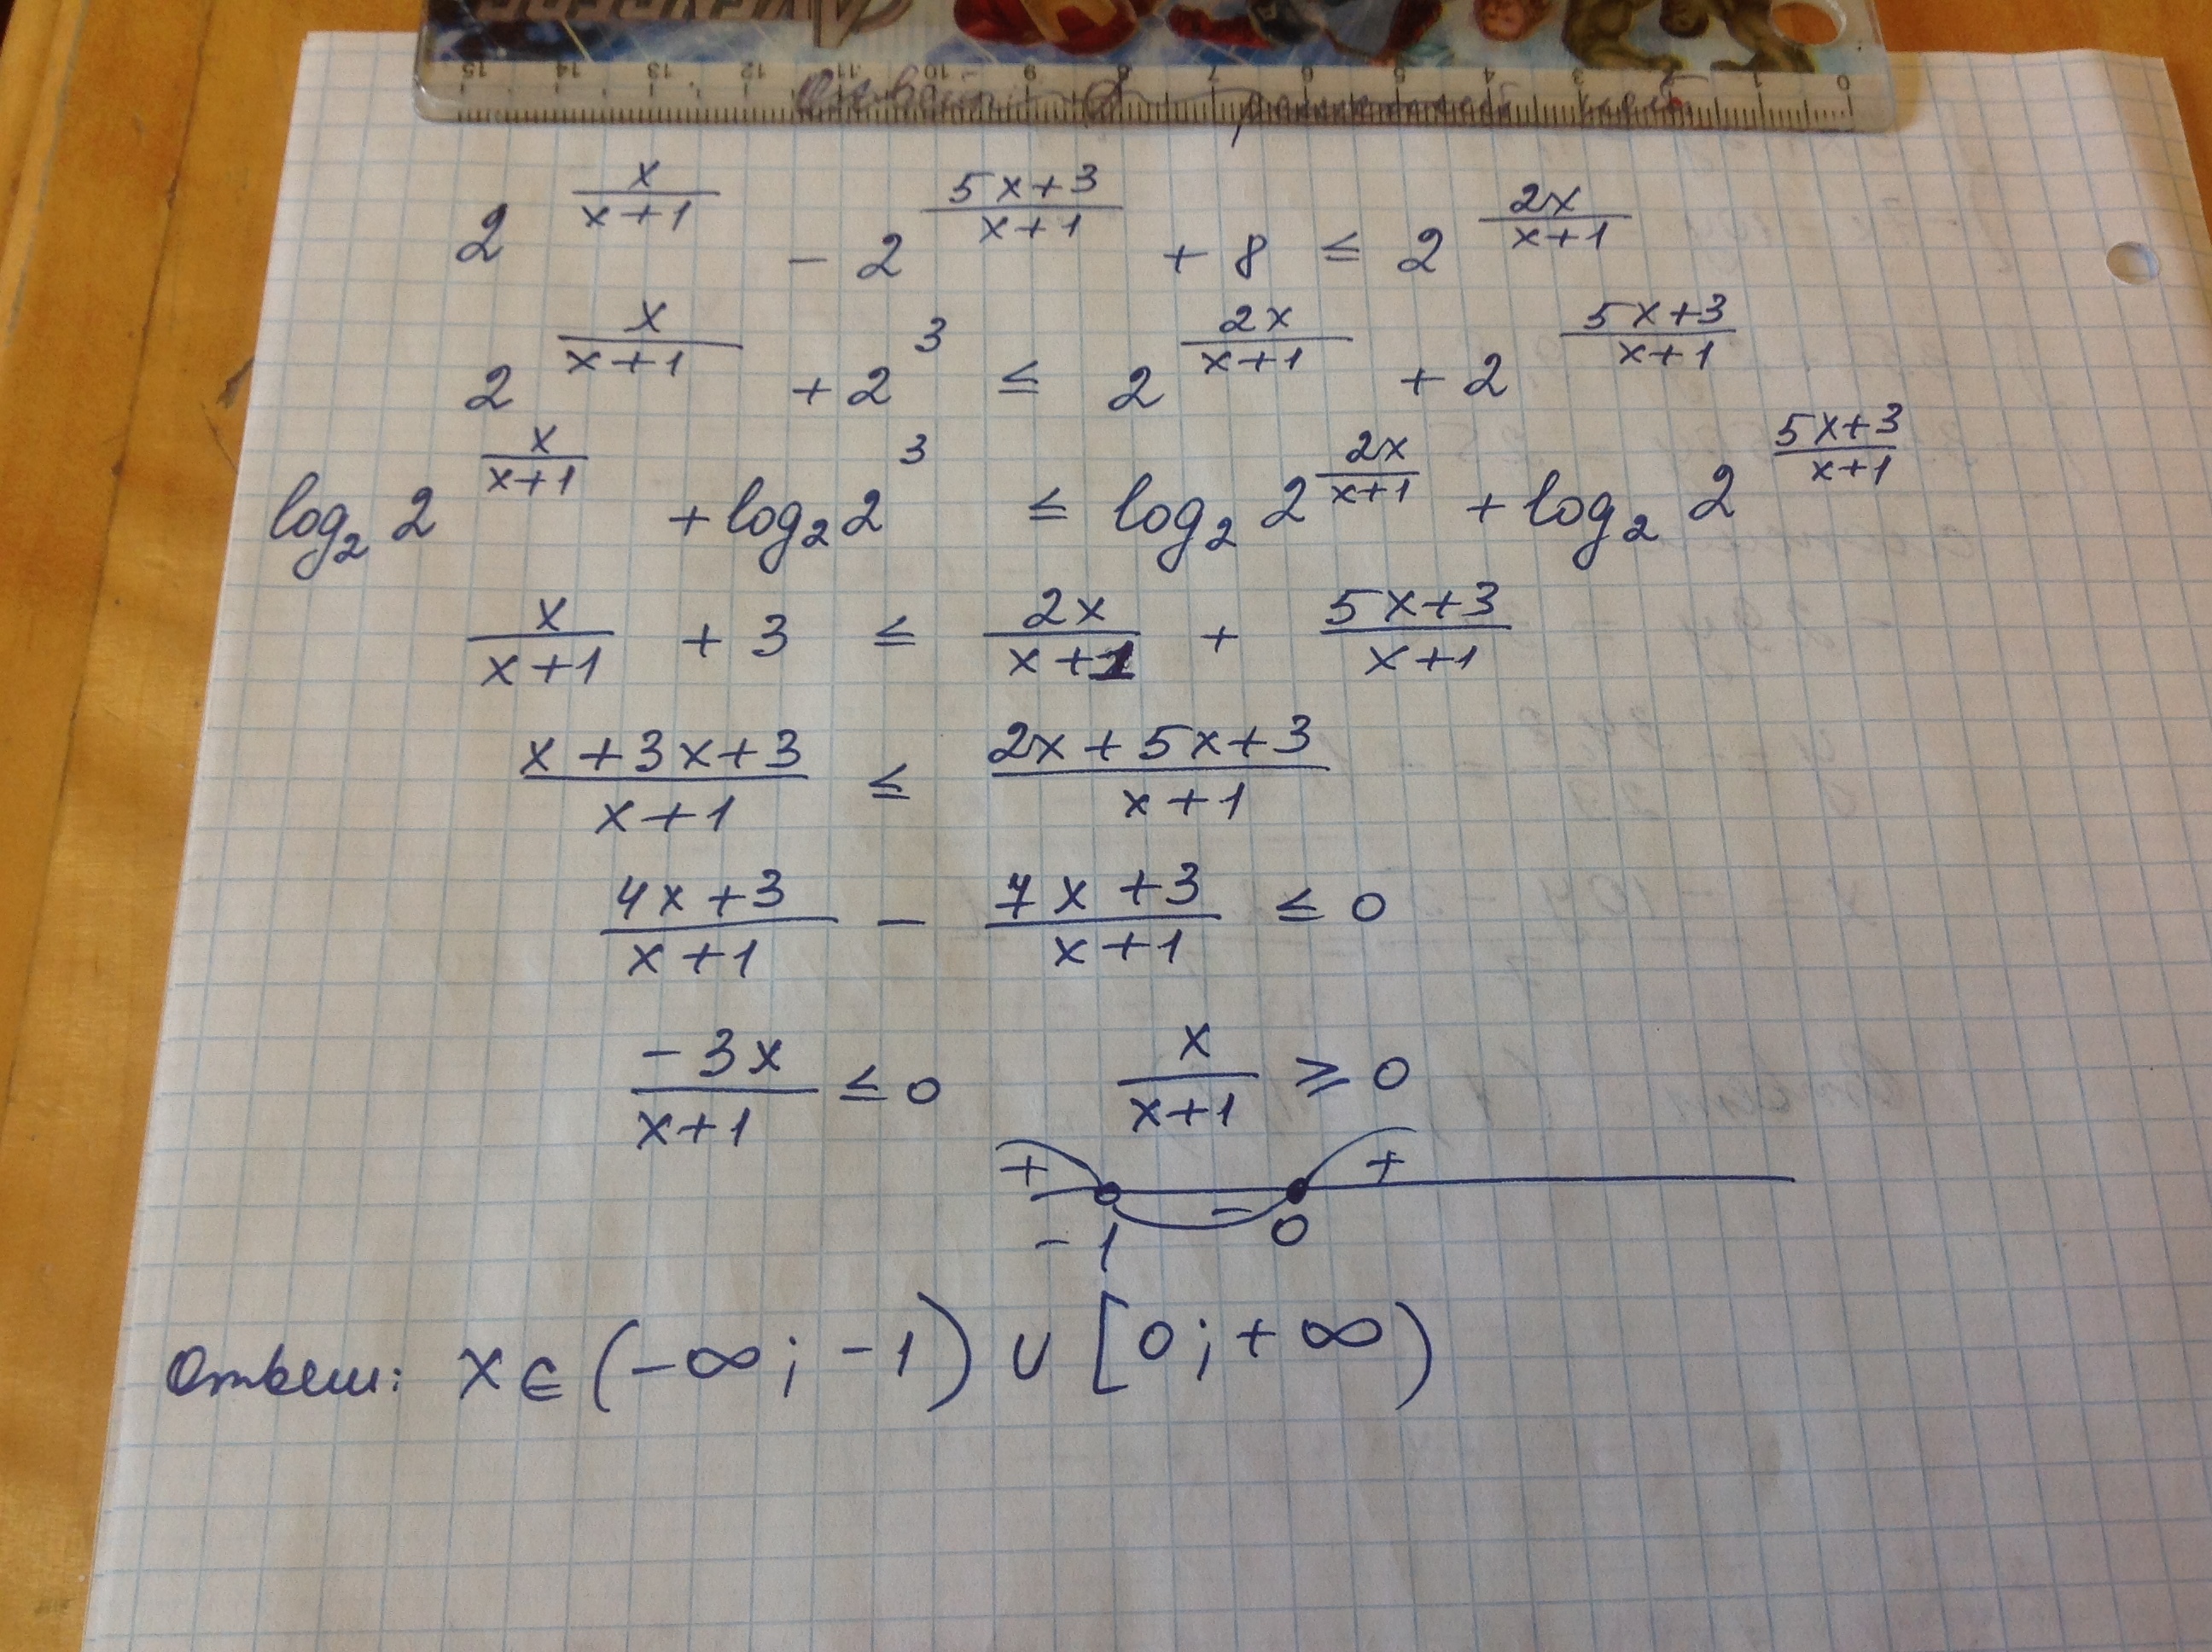 15 14 13 12 11 10 9 8 7 6 5 4 3 2 1 0
2^(x/(x+1)) - 2^((5x+3)/(x+1)) + 8 ≤ 2^(2x/(x+1))
2^(x/(x+1)) + 2^3 ≤ 2^(2x/(x+1)) + 2^((5x+3)/(x+1))
log₂ 2^(x/(x+1)) + log₂ 2^3 ≤ log₂ 2^(2x/(x+1)) + log₂ 2^((5x+3)/(x+1))
x/(x+1) + 3 ≤ 2x/(x+1) + (5x+3)/(x+1)
(x+3x+3)/(x+1) ≤ (2x+5x+3)/(x+1)
(4x+3)/(x+1) - (7x+3)/(x+1) ≤ 0
-3x/(x+1) ≤ 0 x/(x+1) ≥ 0
+ - +
-1 0
Ответ: x ∈ (-∞; -1) ∪ [0; +∞)